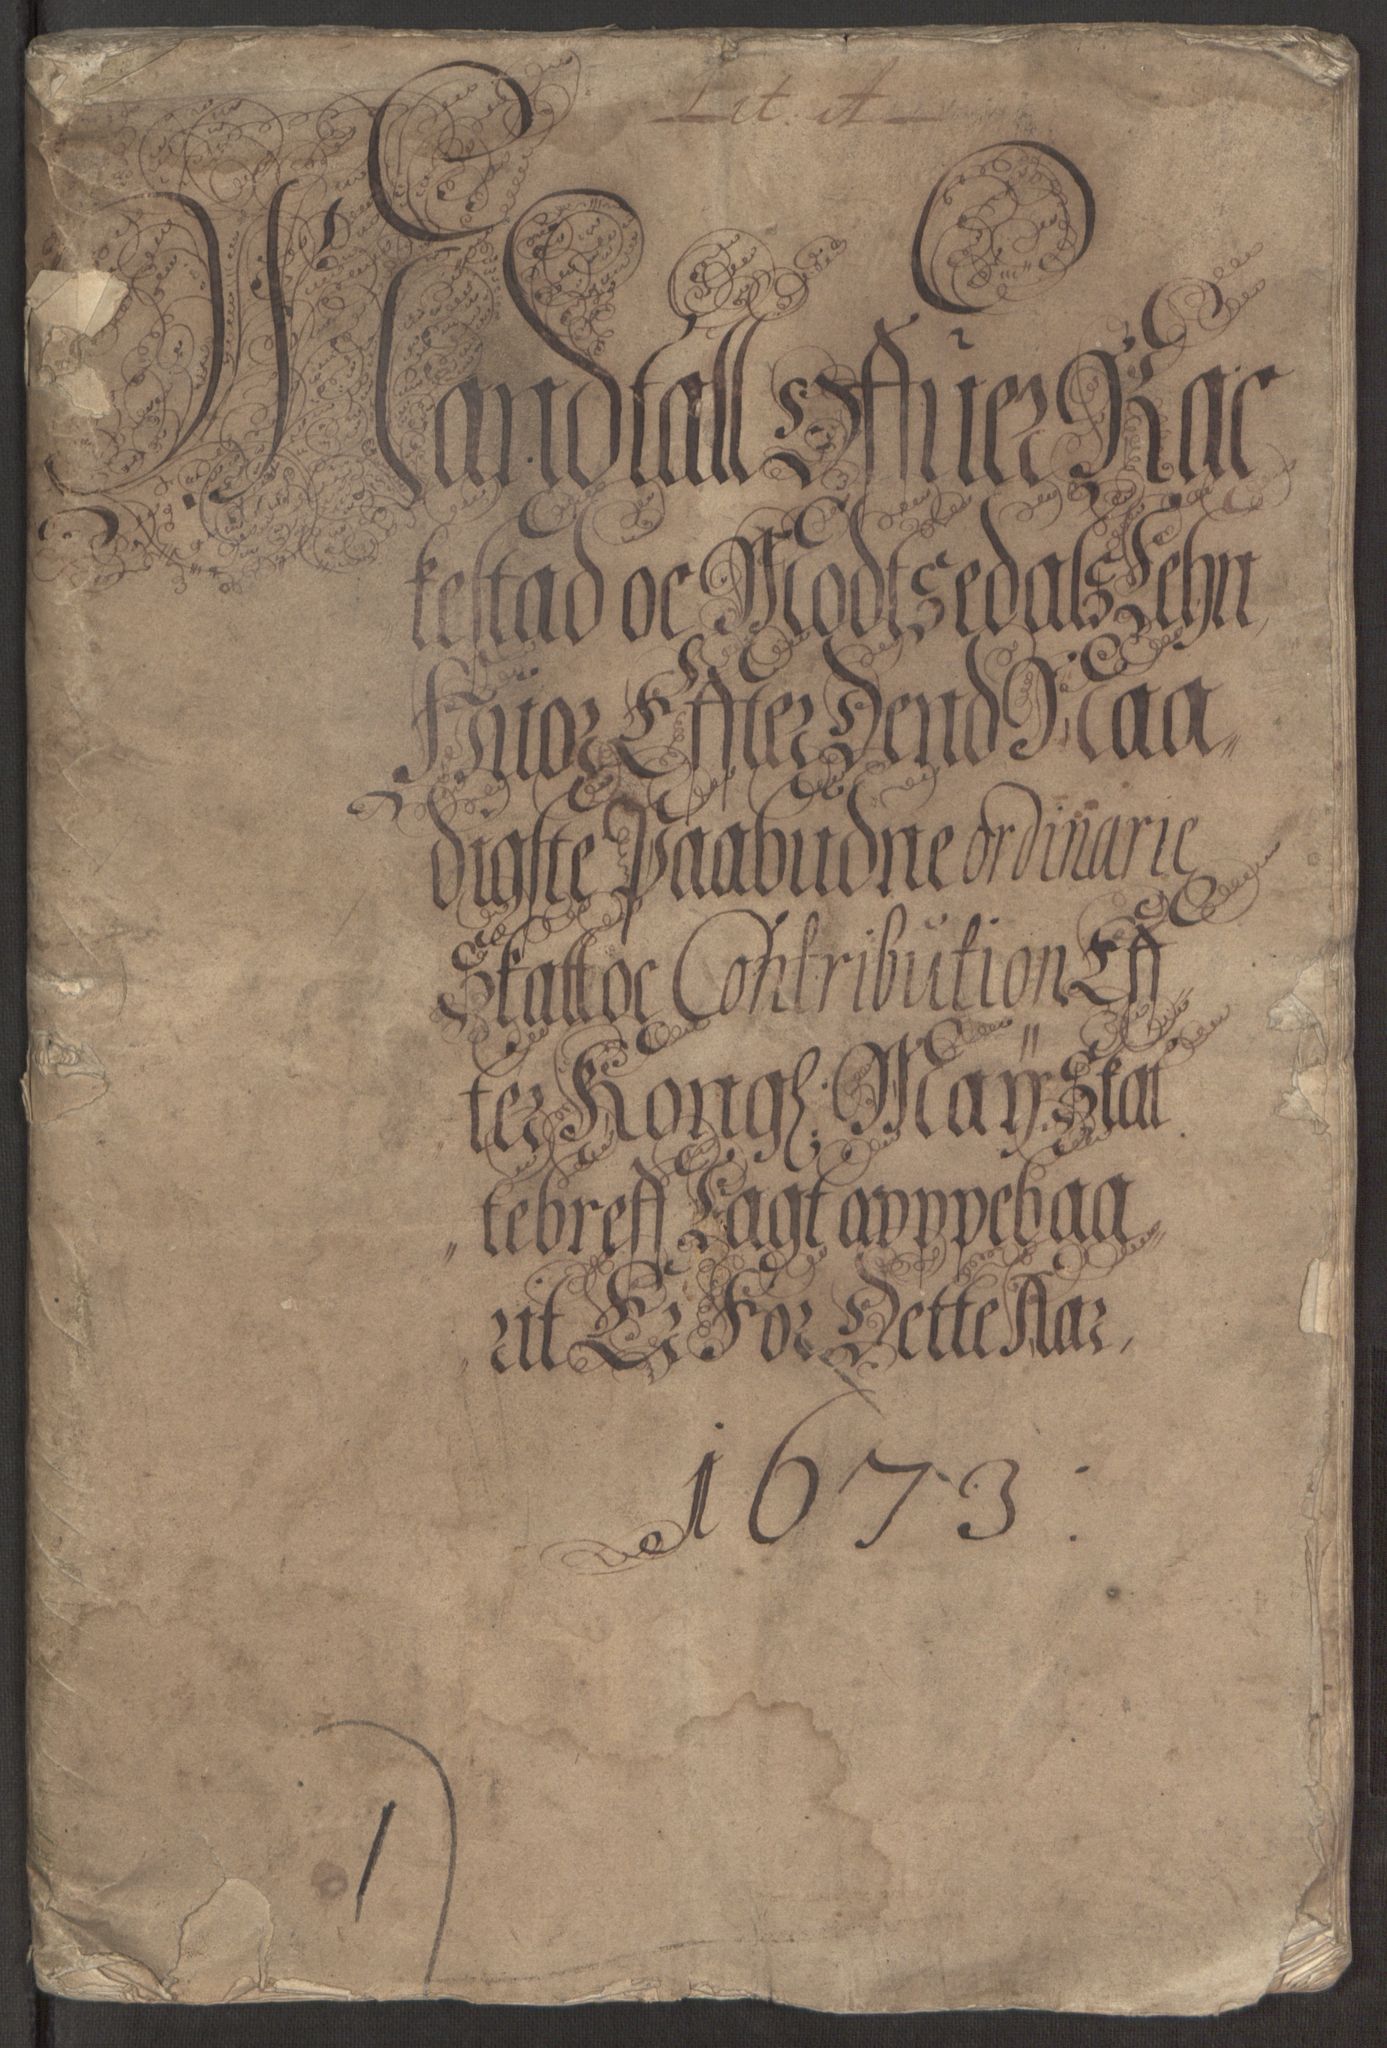 Lit. A
Mandtall Offuer Rac
kestad oc Modtsedals Lehn,
Huor Effter Dend Naa
digste Paabudne ordinarie
Skatt oc Contribution Eff
ter Kongl: May: Skat
tebreff Lagt oppebaa
rit Er For Dette Aar,
1673:
1)